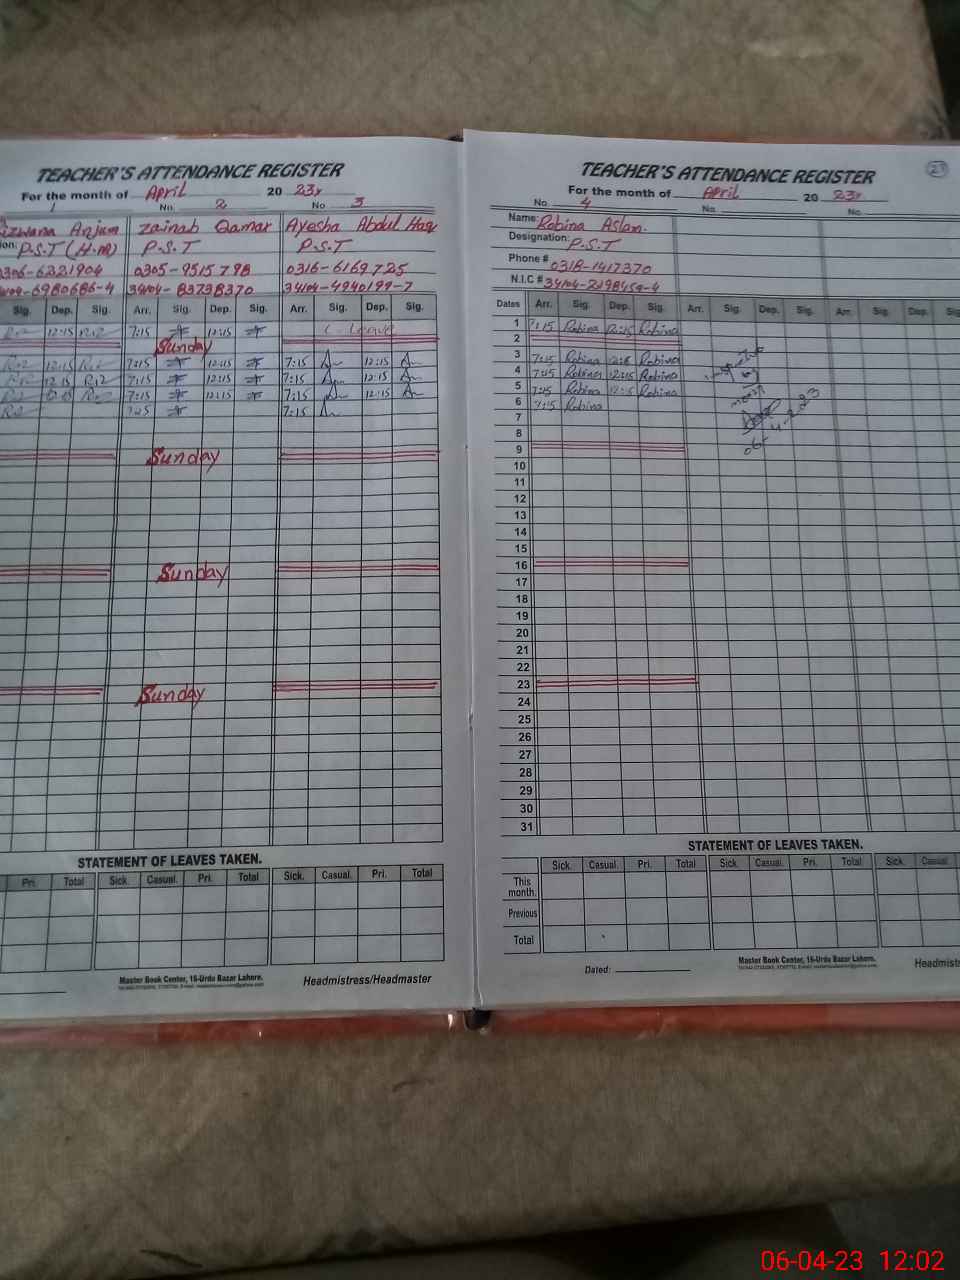 TEACHER'S ATTENDANCE REGISTER
For the month of April 20 23
1 No. 2 No 3
Rizwana Anjum Zainab Qamar Ayesha Abdul Haq
P.S.T (H.M) P.S.T P.S.T
0306-6221904 0305-9515798 0316-6169725
34104-6980686-4 34104-83738370 34104-4940199-7
Sig. Dep. Sig. Arr. Sig. Dep. Sig. Arr. Sig. Dep. Sig.
12:15 7:15 12:15 C. Leave
Sunday
12:15 7:15 12:15 7:15 12:15
12:15 7:15 12:15 7:15 12:15
12:15 7:15 12:15 7:15 12:15
7:15 7:15
Sunday
Sunday
Sunday
STATEMENT OF LEAVES TAKEN.
Pri. Total Sick. Casual. Pri. Total Sick. Casual. Pri. Total
Master Book Center, 16-Urdu Bazar Lahore.
Headmistress/Headmaster
TEACHER'S ATTENDANCE REGISTER
27
For the month of April 20 23
No. 4 No. No.
Name: Robina Aslam.
Designation: P.S.T
Phone # 0318-1417370
N.I.C # 34104-2198459-4
Dates Arr. Sig. Dep. Sig. Arr. Sig. Dep. Sig. Arr. Sig. Dep.
1 7:15 Robina 12:15 Robina
2
3 7:15 Robina 12:15 Robina
4 7:15 Robina 12:15 Robina
5 7:15 Robina 12:15 Robina
6 7:15 Robina
7
8
9
10
11
12
13
14
15
16
17
18
19
20
21
22
23
24
25
26
27
28
29
30
31
06-4-2023
STATEMENT OF LEAVES TAKEN.
Sick. Casual. Pri. Total Sick. Casual. Pri. Total Sick. Casual
This month.
Previous
Total
Dated:
Master Book Center, 16-Urdu Bazar Lahore.
Headmistr
06-04-23 12:02